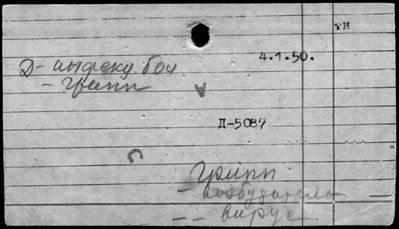 ТН
4.1.50.
Д- инфекц. бол
- грипп
Д-5087
Грипп
- возбудитель
-- вирус